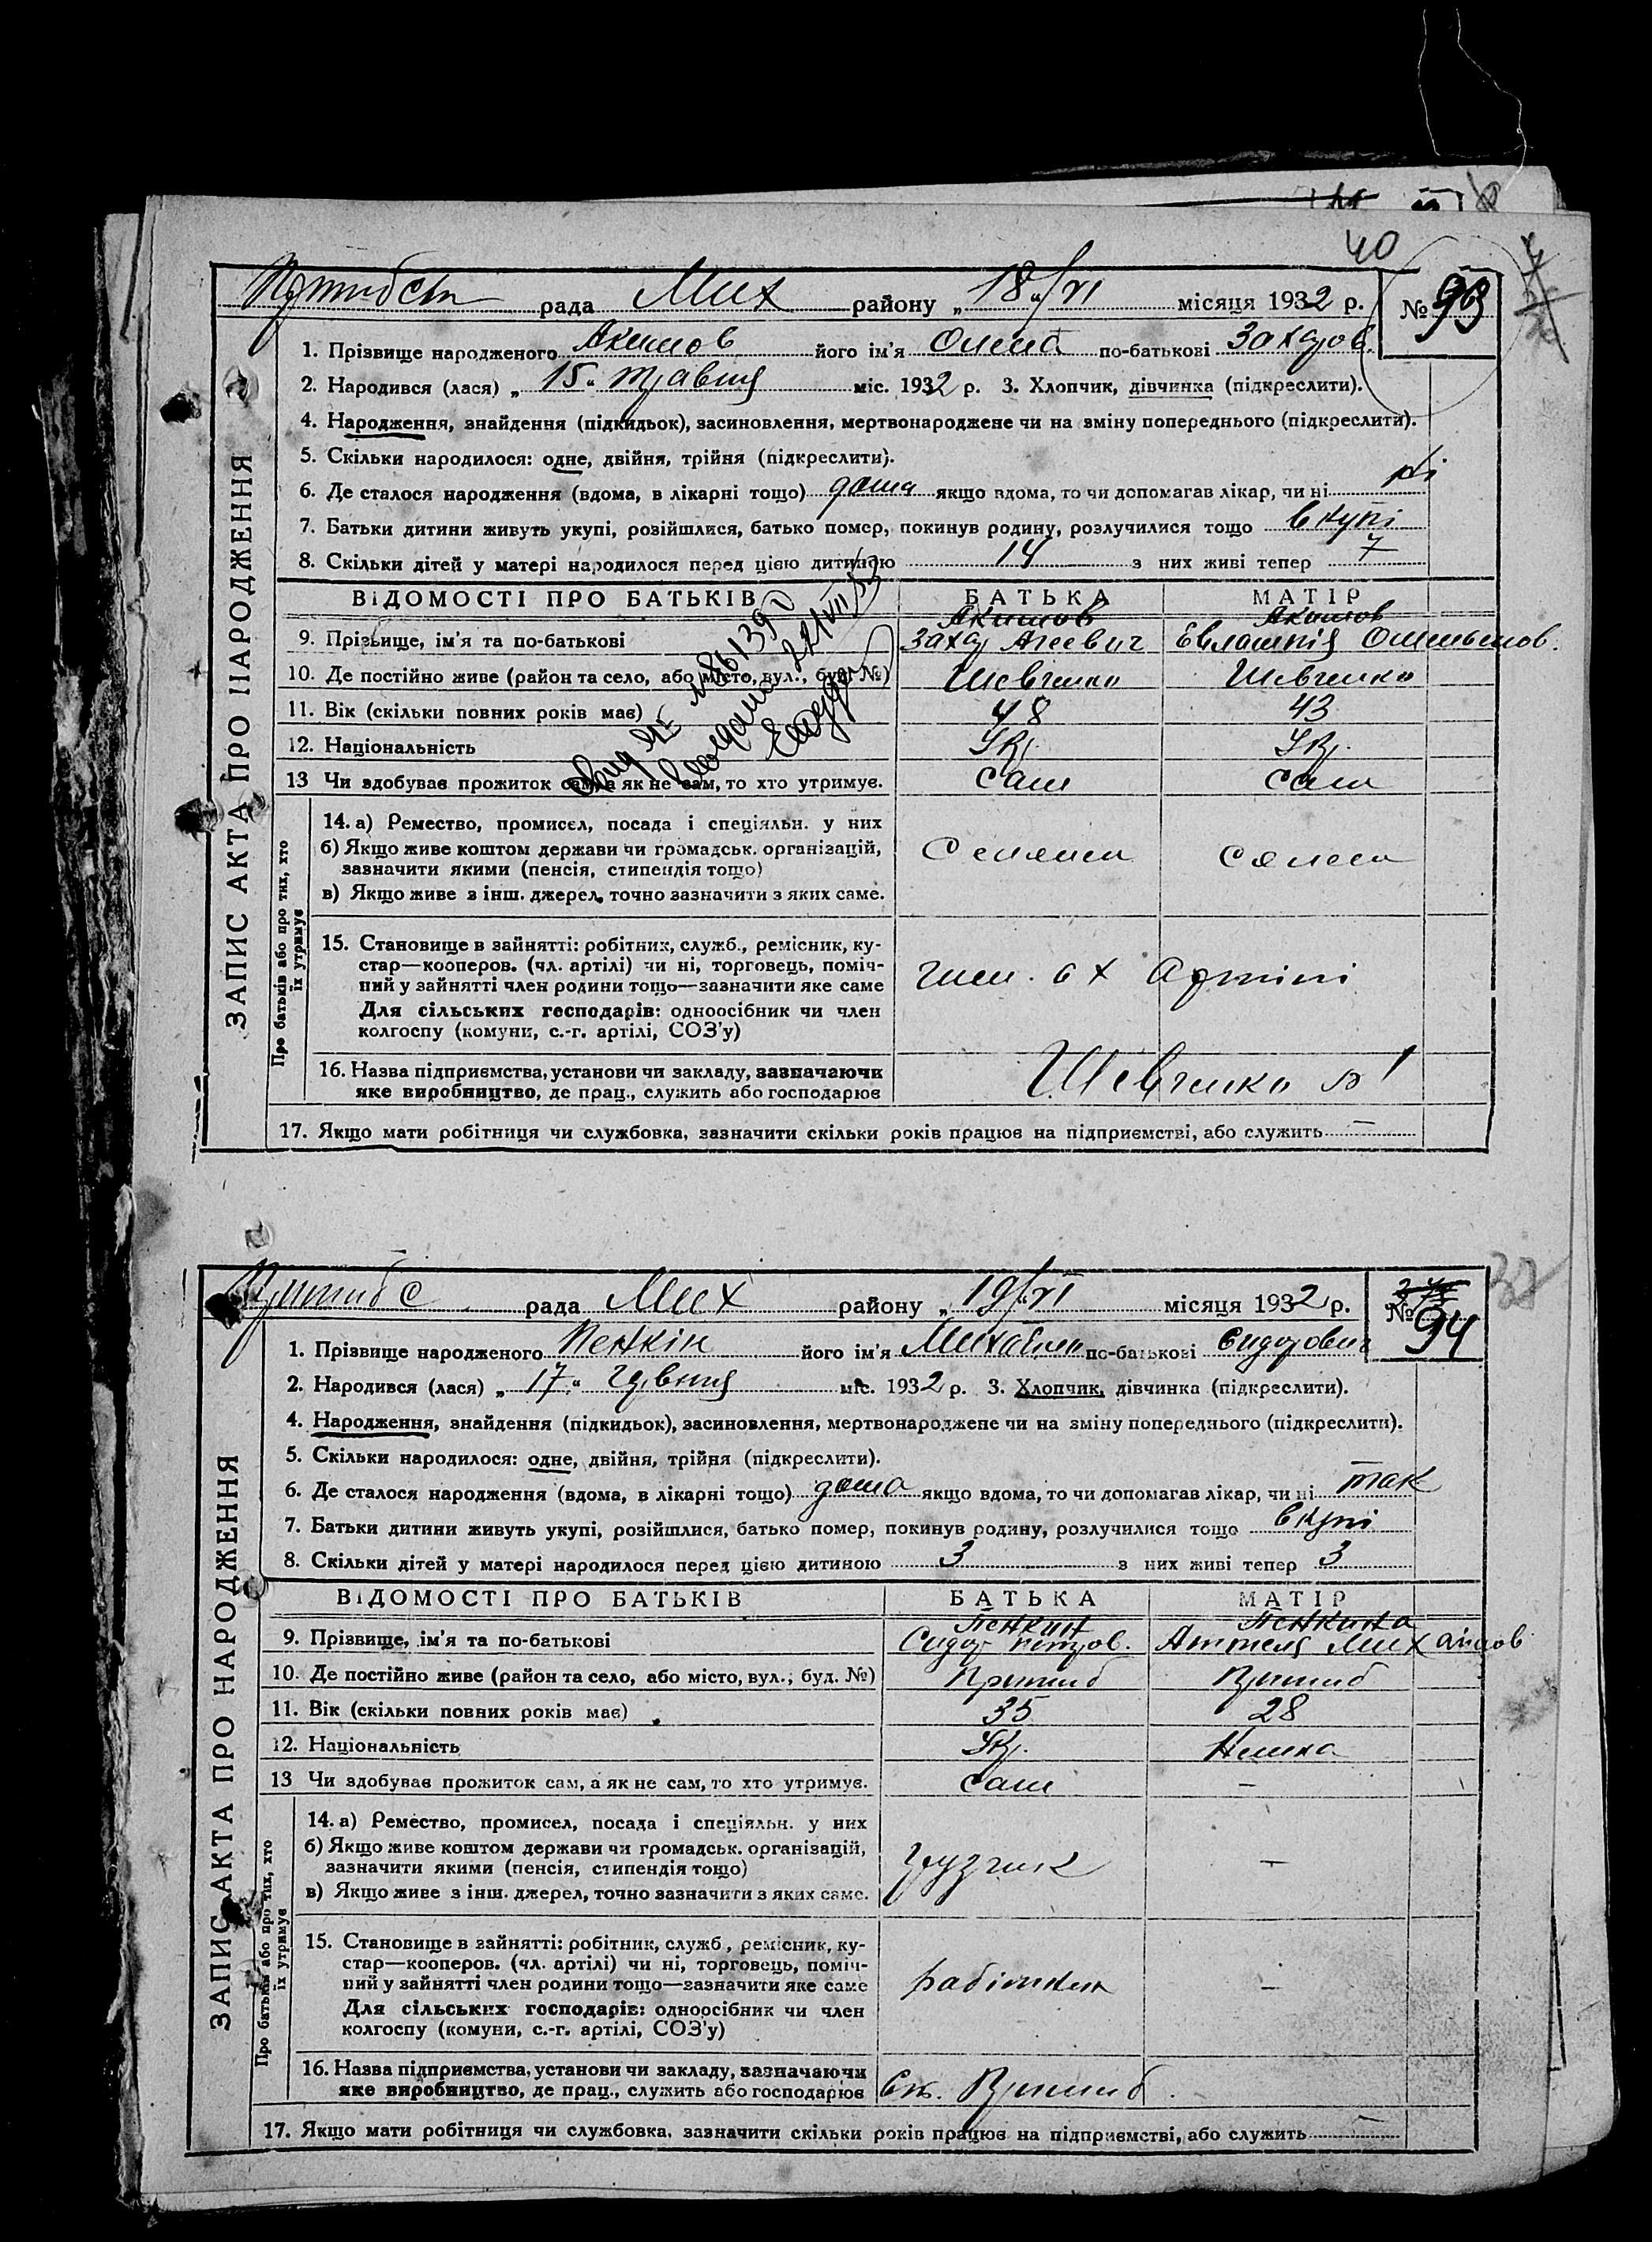 40
рада Мих району „18“/VI місяця 1932 р. № 93
1. Прізвище народженого Акимов його ім'я Олена по-батькові Захаров.
2. Народився (лася) „15“ травня міс. 1932 р. 3. Хлопчик, дівчинка (підкреслити).
4. Народження, знайдення (підкидьок), засиновлення, мертвонароджене чи на зміну попереднього (підкреслити).
5. Скільки народилося: одне, двійня, трійня (підкреслити).
6. Де сталося народження (вдома, в лікарні тощо) дома якщо вдома, то чи допомагав лікар, чи ні ні
7. Батьки дитини живуть укупі, розійшлися, батько помер, покинув родину, розлучилися тощо вкупі
8. Скільки дітей у матері народилося перед цією дитиною 14 з них живі тепер 7
ВІДОМОСТІ ПРО БАТЬКІВ БАТЬКА МАТІР
Акимов Акимов
9. Прізвище, ім'я та по-батькові Захар Агеевич Евлампія
10. Де постійно живе (район та село, або місто, вул., буд. №) Шевченко Шевченко
11. Вік (скільки повних років має) 48 43
12. Національність Укр. Укр.
13 Чи здобуває прожиток сам, а як не сам, то хто утримує. сам сам
14. а) Ремество, промисел, посада і спеціяльн. у них
б) Якщо живе коштом держави чи громадськ. організацій,
зазначити якими (пенсія, стипендія тощо)
в) Якщо живе з інш. джерел, точно зазначити з яких саме.
15. Становище в зайнятті: робітник, служб., ремісник, ку-
стар—кооперов. (чл. артілі) чи ні, торговець, поміч-
ний у зайнятті член родини тощо—зазначити яке саме
член. с х Артілі
Для сільських господарів: одноосібник чи член
колгоспу (комуни, с.-г. артілі, СОЗ'у)
16. Назва підприємства, установи чи закладу, зазначаючи
яке виробництво, де прац., служить або господарює
Шевченко № 1
17. Якщо мати робітниця чи службовка, зазначити скільки років працює на підприємстві, або служить —
ЗАПИС АКТА ПРО НАРОДЖЕННЯ
Про батьків або про тих, хто
їх утримує
рада Мих району „19“/VI місяця 1932 р. № 94
1. Прізвище народженого Пенкін його ім'я Михайло по-батькові Сидорович
2. Народився (лася) „17“ червня міс. 1932 р. 3. Хлопчик, дівчинка (підкреслити).
4. Народження, знайдення (підкидьок), засиновлення, мертвонароджене чи на зміну попереднього (підкреслити).
5. Скільки народилося: одне, двійня, трійня (підкреслити).
6. Де сталося народження (вдома, в лікарні тощо) дома якщо вдома, то чи допомагав лікар, чи ні так
7. Батьки дитини живуть укупі, розійшлися, батько помер, покинув родину, розлучилися тощо вкупі
8. Скільки дітей у матері народилося перед цією дитиною 3 з них живі тепер 3
ВІДОМОСТІ ПРО БАТЬКІВ БАТЬКА МАТІР
Пенкин Пенкина
9. Прізвище, ім'я та по-батькові Сидор Петров. Михайлов
10. Де постійно живе (район та село, або місто, вул., буд. №) Пришиб Пришиб
11. Вік (скільки повних років має) 35 28
12. Національність Укр. Немка
13 Чи здобуває прожиток сам, а як не сам, то хто утримує. сам —
14. а) Ремество, промисел, посада і спеціяльн. у них
б) Якщо живе коштом держави чи громадськ. організацій,
зазначити якими (пенсія, стипендія тощо)
грузчик —
в) Якщо живе з інш. джерел, точно зазначити з яких саме.
15. Становище в зайнятті: робітник, служб., ремісник, ку-
стар—кооперов. (чл. артілі) чи ні, торговець, поміч-
ний у зайнятті член родини тощо—зазначити яке саме
рабітник —
Для сільських господарів: одноосібник чи член
колгоспу (комуни, с.-г. артілі, СОЗ'у)
16. Назва підприємства, установи чи закладу, зазначаючи
яке виробництво, де прац., служить або господарює
Ст. Пришиб.
17. Якщо мати робітниця чи службовка, зазначити скільки років працює на підприємстві, або служить —
ЗАПИС АКТА ПРО НАРОДЖЕННЯ
Про батьків або про тих, хто
їх утримує